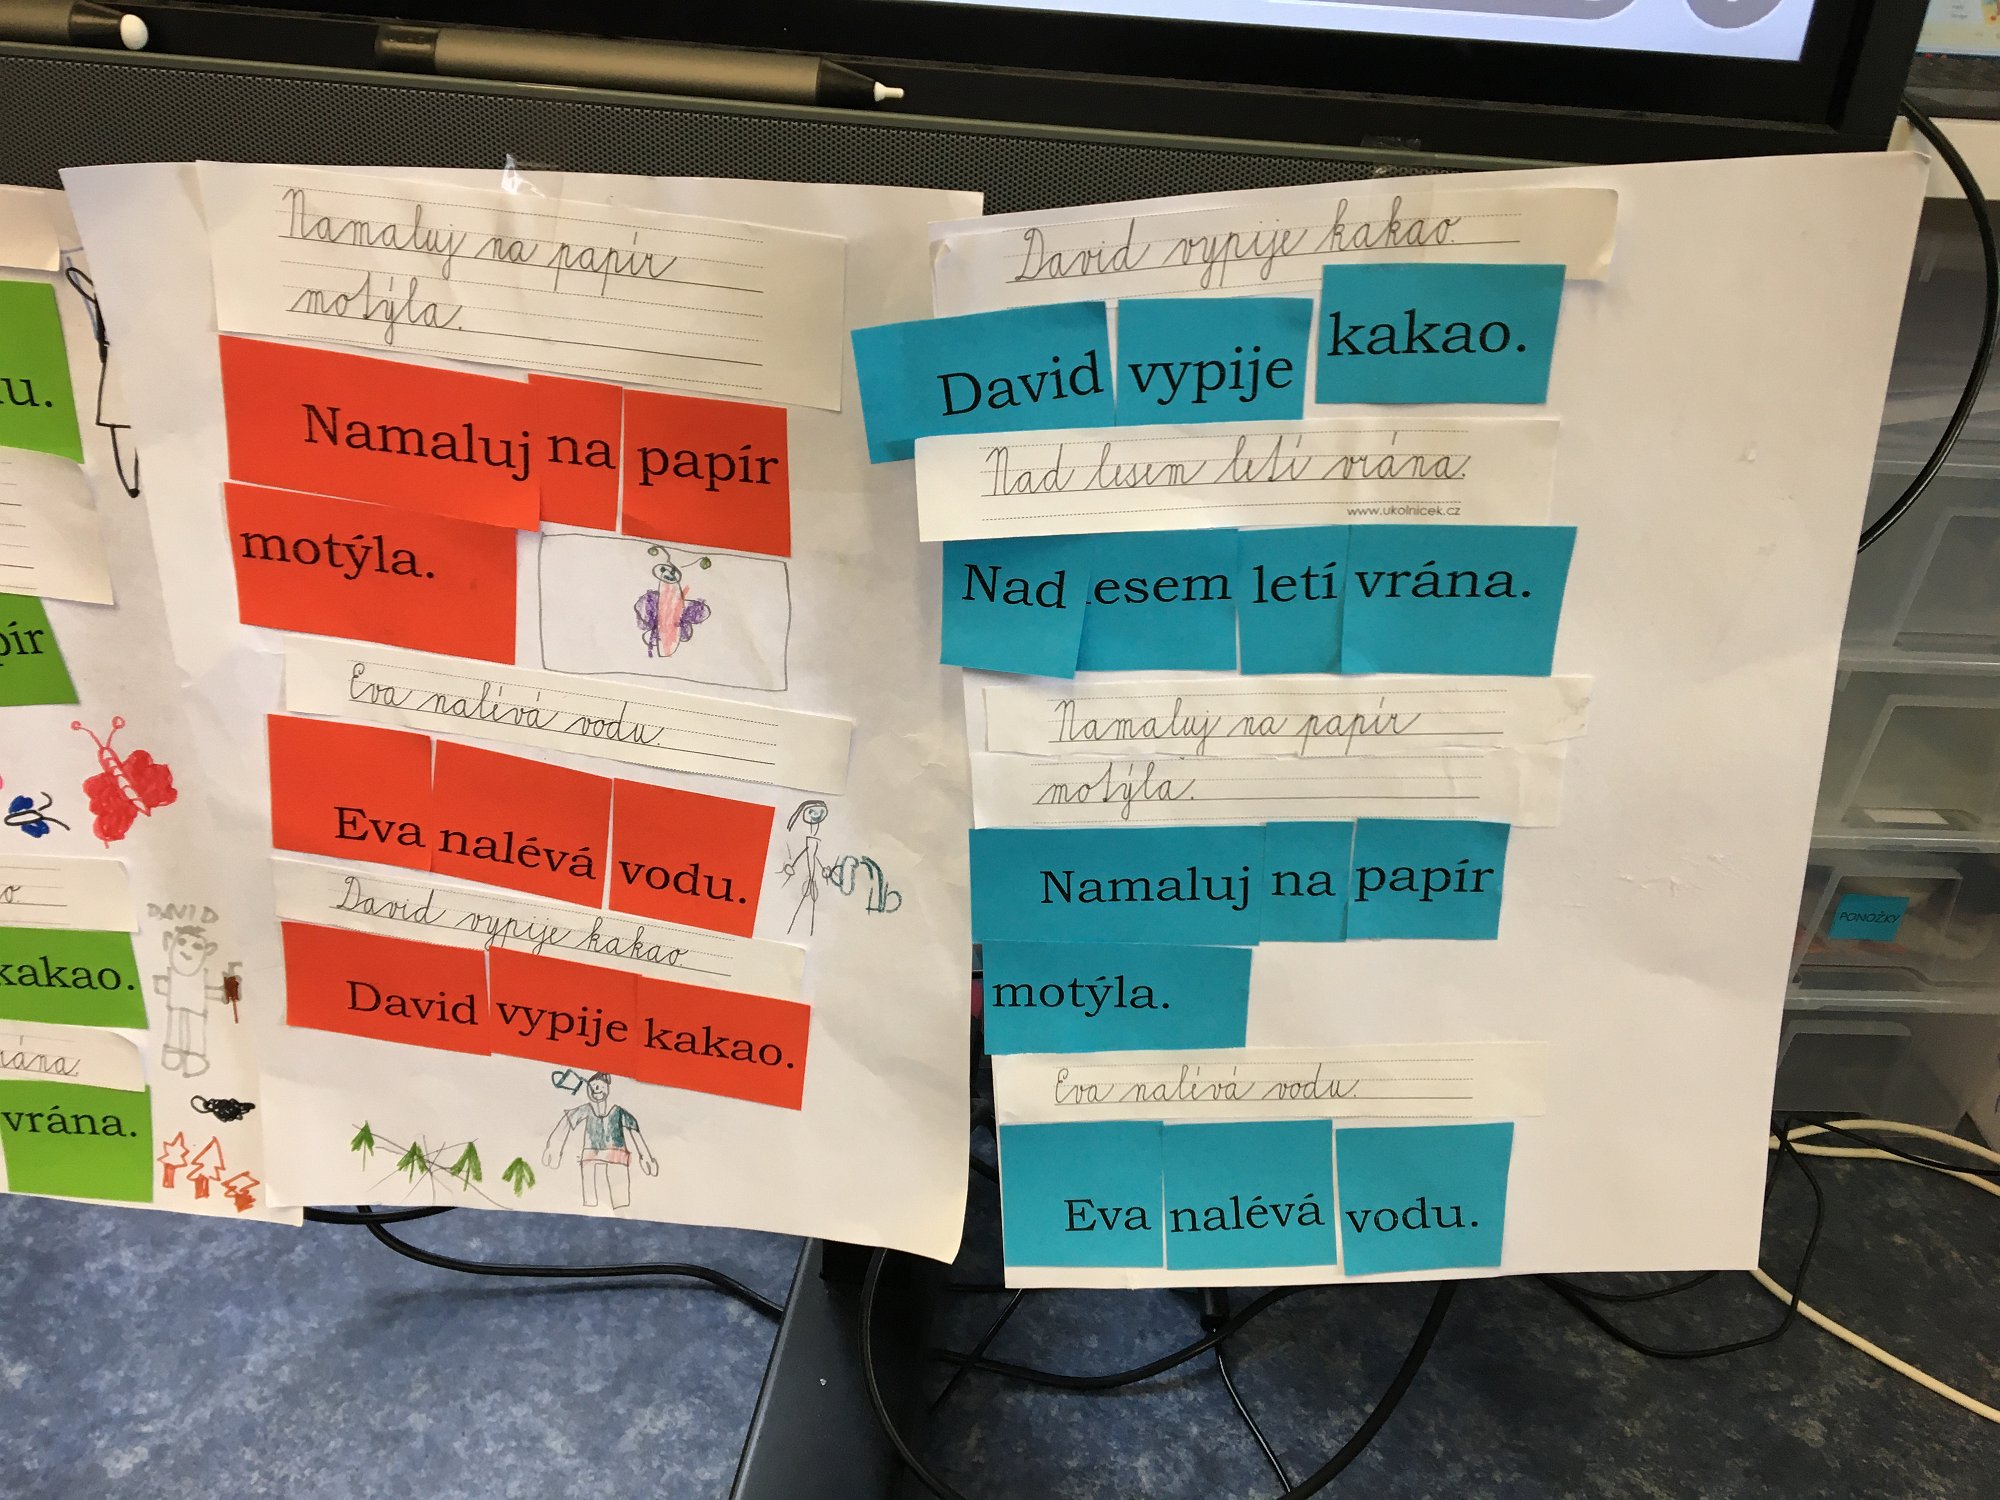 u.
pír
o.
kakao.
rána.
vrána.
DAVID
Namaluj na papír
motýla.
Namaluj na papír
motýla.
Eva nalívá vodu.
Eva nalévá vodu.
David vypije kakao.
David vypije kakao.
David vypije kakao.
David vypije kakao.
Nad lesem letí vrána.
www.ukolnicek.cz
Nad esem letí vrána.
Namaluj na papír
motýla.
Namaluj na papír
motýla.
Eva nalívá vodu.
Eva nalévá vodu.
PONOŽKY